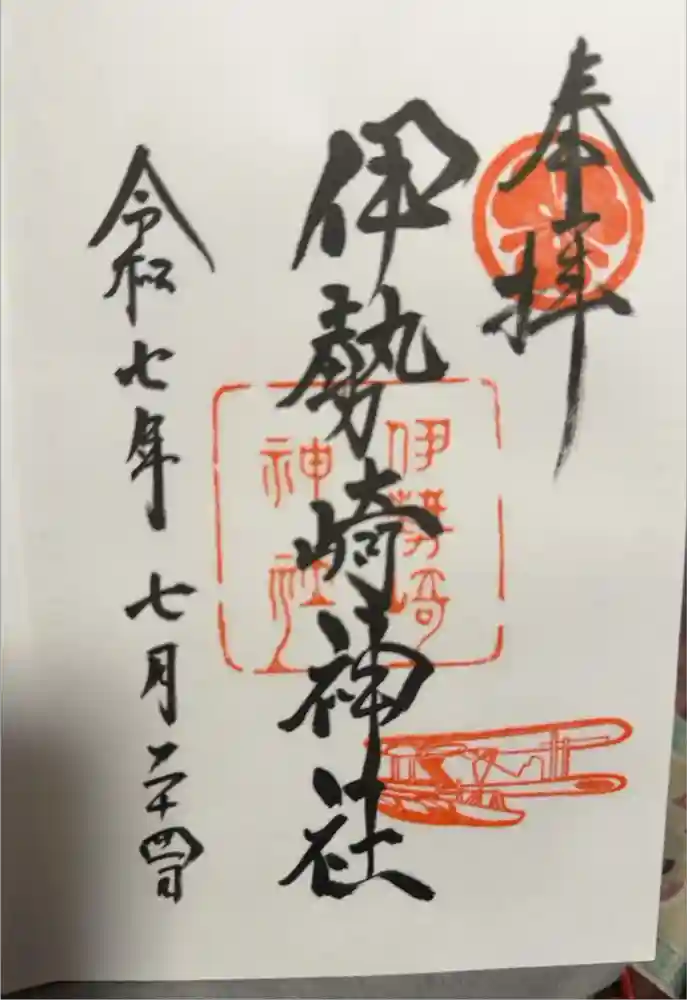 奉拝
伊勢崎神社
伊勢崎
神社
令和七年 七月二十四日